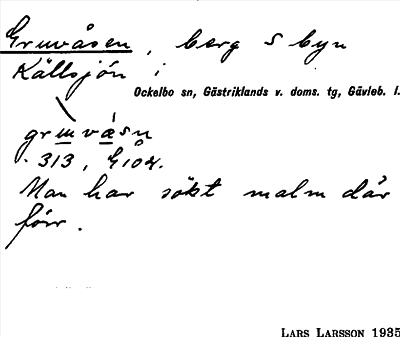 Gruvåsen, berg S byn
Källsjön i
Ockelbo sn, Gästriklands v. doms. tg, Gävleb. l.
gruvåsn
313, G104.
Man har sökt malm där
förr.
LARS LARSSON 1935